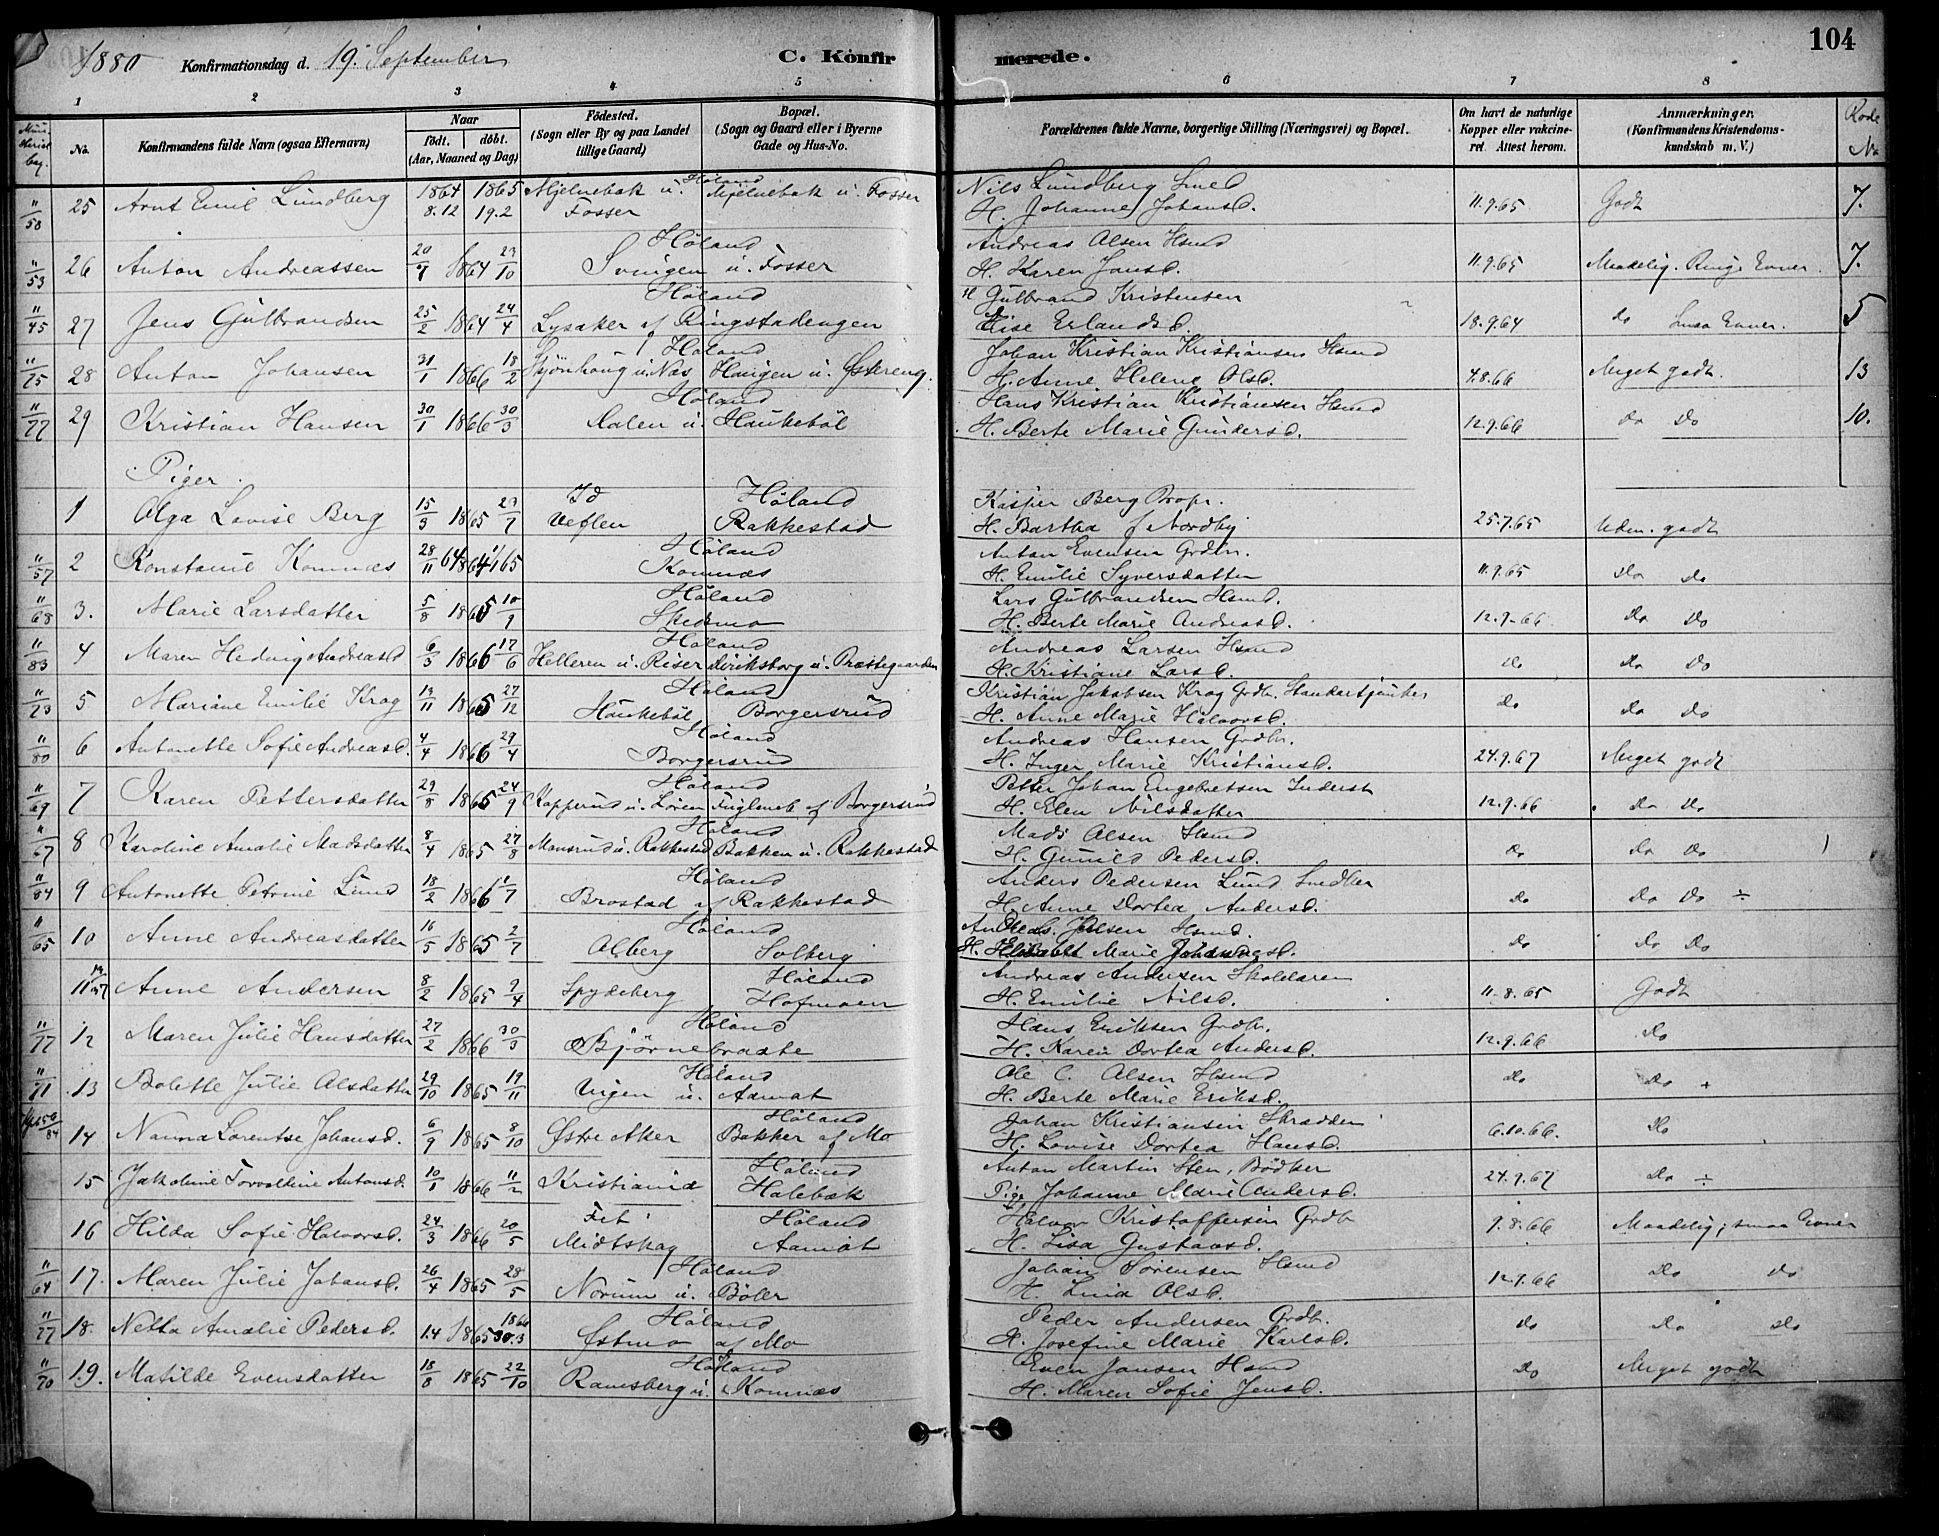 104
1880 Konfirmationsdag d. 19. September C. Konfirmerede.
1 2 3 4 5 6 7 8
No. Konfirmandens fulde Navn (ogsaa Efternavn) Naar født. døbt. (Aar, Maaned og Dag) Födested. (Sogn eller By og paa Landet tillige Gaard) Bopæl. (Sogn og Gaard eller i Byerne Gade og Hus-No. Forældrenes fulde Navne, borgerlige Stilling (Næringsvei) og Bopæl. Om havt de naturlige Kopper eller vakcineret. Attest herom. Anmærkninger. (Konfirmandens Kristendomskundskab m. V.) Rode No
Høland Nils Lundberg Smed
25 Arnt Emil Lundberg 1864 8.12 1865 19.2 Mjelnebak u. Fosser Mjelnebak u. Fosser H. Johanne Johansd. 11.9.65 Godt 7.
Høland Andreas Olsen Hsmd
26 Anton Andreassen 20/7 1864 23/10 Svingen u. Fosser H. Karen Jansd. 11.9.65 Maadelig. Ringe Evner. 7.
Høland Gulbrand Kristensen
27 Jens Gulbrandsen 25/2 1864 24/4 Lysaker af Ringstadengen Lise Erlandsd. 18.9.64 do Smaa Evner. 5
Høland Johan Kristian Kristiansen Hsmd
28 Anton Johansen 31/1 1866 18/2 Skjønhaug u. Næs Haugen u. Østereng. H. Anne Helene Olsd. 4.8.66 Meget godt. 13
Høland Hans Kristian Kristiansen Hsmd
29 Kristian Hansen 30/1 1866 30/3 Aalen u. Haukebøl H. Berte Marie Gundersd. 12.9.66 do do 10.
Piger.
Id Høland Kasper Berg Propr.
1 Olga Lovise Berg 15/3 1865 23/7 Veflen Rakkestad H. Bartha f Nordby 25.7.65 Udm. godt
Høland Anton Evensen Grdbr.
2 Konstanse Komnæs 28/11 64 1/1 65 Komnæs H. Emilie Syversdatter 11.9.65 do do
Høland Lars Gulbrandsen Hsmd.
3. Marie Larsdatter 5/8 1865 10/9 Skedsmo H. Berte Marie Andreasd. 12.9.66 do do
Høland Andreas Larsen Hsmd
4 Maren Hedvig Andreasd 6/3 1866 17/6 Helleren u. Riser Diriksborg u. Præstegaarden H. Kristiane Larsd. do do do
Høland Kristian Jakobsen Krog Grdbr. Standartjunker
5 Mariane Emilie Krog 19/11 1865 27/12 Haukebøl Borgersrud H. Anne Marie Halvorsd. do do do
Høland Andreas Hansen Grdbr.
6 Antonette Sofie Andreasd. 4/4 1866 29/4 Borgersrud H. Inger Marie Kristiansd. 24.9.67 Meget godt
Høland Petter Johan Engebretsen Inderst
7 Karen Pettersdatter 29/8 1865 24/9 Kopperud u. Løren Fuglereb af Borgersrud H. Elen Nilsdatter 12.9.66 do do
Høland Mads Olsen Hsmd
8 Karoline Amalie Madsdatter 8/4 1865 27/8 Monsrud u. Rakkestad Bakken u. Rakkestad H. Gunild Pedersd. do do do
Høland Anders Pedersen Lund Snedker
9 Antonette Petrine Lund 18/2 1866 1/7 Brostad af Rakkestad H. Anne Dortea Andersd. do do do ÷
Høland Andreas Jensen Hsmd.
10 Anne Andreasdatter 16/5 1865 2/7 Alberg Solberg H. Elisabet Marie Johannesd. do do do
Høland Andreas Andersen Skolelærer
11 Anne Andersen 8/2 1865 9/4 Spydeberg Hofmoen H. Emilie Nilsd. 11.8.65 Godt
Høland Hans Eriksen Grdbr.
12 Maren Julie Hansdatter 27/2 1866 30/3 Bjørnebraate H. Karen Dortea Andersd. 12.9.66 do
Høland Ole C. Olsen Hsmd
13 Bolette Julie Olsdatter 29/10 1865 19/11 Vigen u. Aamot H. Berte Marie Eriksd. do do +
Høland Johan Kristiansen Skrædder
14 Nanna Lorentse Johansd. 6/9 1865 8/10 Østre Aker Bakker af Mo H. Lovise Dortea Hansd. 6.10.66. do
Høland Anton Martin Sten, Bødker
15 Jakobine Torvaldine Antonsd. 10/1 1866 11/2 Kristiania Holebæk Pige Johanne Marie Andersd. 24.9.67 do ÷
Fet Høland Halvor Kristoffersen Grdbr
16 Hilda Sofie Halvorsd. 24/3 1866 20/5 Midtskog Aamot H. Lisa Gustavsd. 9.8.66 Maadelig, smaa Evner
Høland Johan Sørensen Hsmd
17. Maren Julie Johansd. 26/4 1865 28/5 Norum u. Bøler H. Lina Olsd. 12.9.66 do do
Høland Peder Andersen Grdbr.
18. Netta Amalie Pedersd. 1865 1866 30.3 Østmo af Mo H. Josefine Marie Karlsd. do do do
Høland Even Jansen Hsmd
19. Matilde Evensdatter 18/8 1865 22/10 Ramsberg u. Komnæs H. Maren Sofie Jensd. do Meget godt